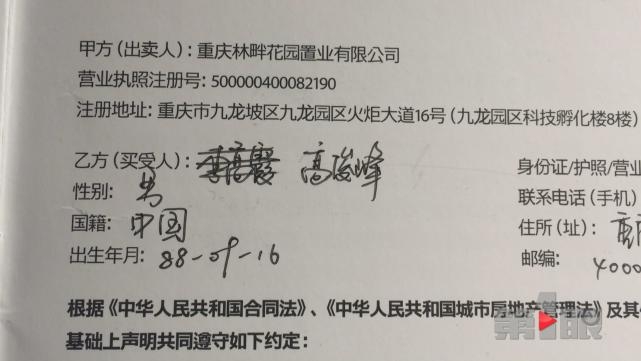 甲方（出卖人）：重庆林畔花园置业有限公司
营业执照注册号：500000400082190
注册地址：重庆市九龙坡区九龙园区火炬大道16号（九龙园区科技孵化楼8楼）
乙方（买受人）： 高俊峰
身份证/护照/营业
性别： 男
联系电话（手机）
国籍： 中国
住所（址）：
出生年月： 88-09-16
邮编： 4000
根据《中华人民共和国合同法》、《中华人民共和国城市房地产管理法》及其
基础上声明共同遵守如下约定：
第1眼